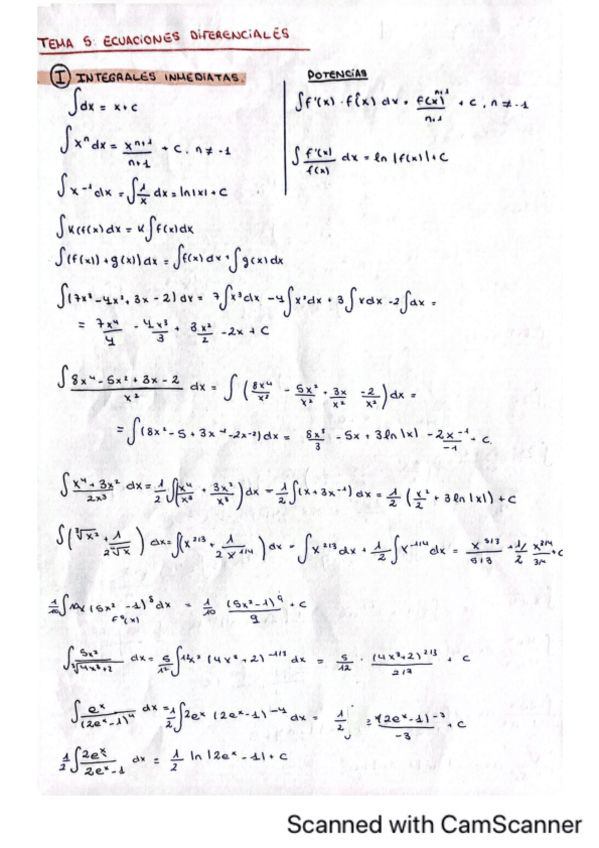 TEMA 5: ECUACIONES DIFERENCIALES
I INTEGRALES INMEDIATAS.
∫dx = x+c
∫xⁿdx = xⁿ⁺¹/n+1 + c. n ≠ -1
∫x⁻¹dx = ∫1/x dx = ln|x| + C
∫K(f(x)dx = K∫f(x)dx
∫(f(x)) + g(x))dx = ∫f(x)dx + ∫g(x)dx
POTENCIAS
∫f'(x) · fⁿ(x) dx = f(x)ⁿ⁺¹/n+1 + c. n ≠ -1
∫f'(x)/f(x) dx = ln |f(x)| + C
∫(7x³ - 4x², 3x - 2)dx = 7∫x³dx - 4∫x²dx + 3∫xdx - 2∫dx =
= 7x⁴/4 - 4x³/3 + 3x²/2 - 2x + C
∫8x⁴ - 5x² + 3x - 2/x² dx = ∫(8x⁴/x² - 5x²/x² + 3x/x² - 2/x²)dx =
= ∫(8x² - 5 + 3x⁻¹ - 2x⁻²)dx = 8x³/3 - 5x + 3ln|x| - 2x⁻¹/-1 + c.
∫x⁴ + 3x²/2x³ dx = 1/2∫(x⁴/x³ + 3x²/x³)dx = 1/2∫(x + 3x⁻¹)dx = 1/2(x²/2 + 3ln|x|) + C
∫(∛x² + 1/2∜x) dx = ∫(x^2/3 + 1/2x^1/4)dx = ∫x^2/3dx + 1/2∫x^-1/4dx = x^5/3/5/3 + 1/2 x^3/4/3/4 + C
1/10∫10x(5x² - 1)⁸dx = 1/10 (5x² - 1)⁹/9 + C
f'(x)
∫5x²/∛4x³+2 dx = 5/12∫12x²(4x³+2)^-1/3 dx = 5/12 · (4x³+2)^2/3/2/3 + C
∫eˣ/(2eˣ-1)⁴ dx = 1/2∫2eˣ(2eˣ-1)⁻⁴dx = 1/2 (2eˣ-1)⁻³/-3 + C
1/2∫2eˣ/2eˣ-1 dx = 1/2 ln |2eˣ - 1| + C
Scanned with CamScanner